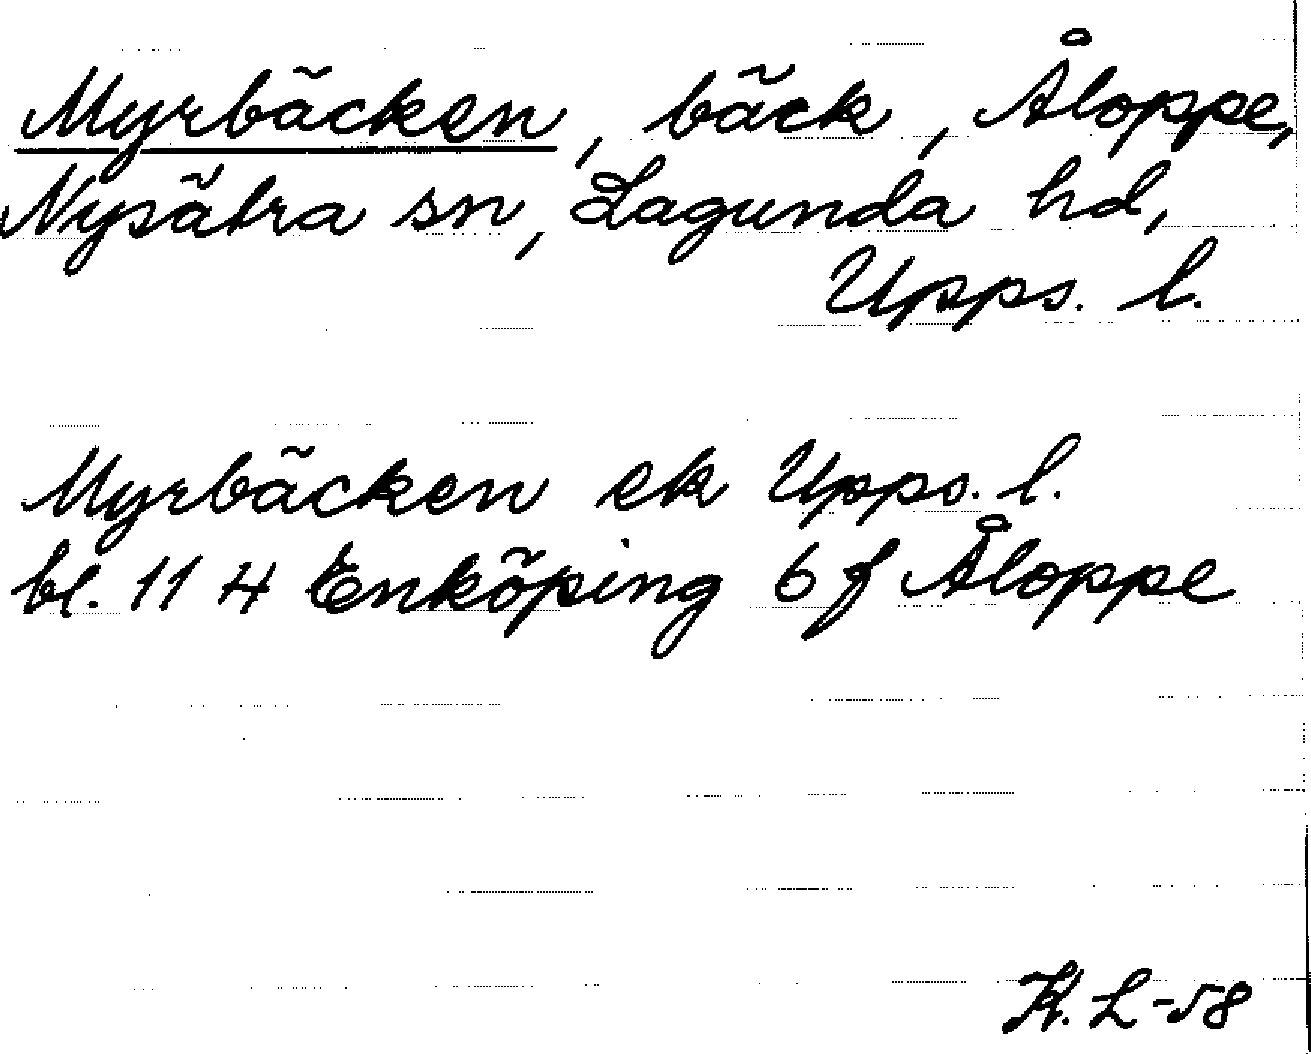 Myrbäcken, bäck, Åloppe,
Nysätra sn, Lagunda hd,
Upps. l.
Myrbäcken ek Upps. l.
bl. 11 H Enköping 6 f Åloppe
H. L-58